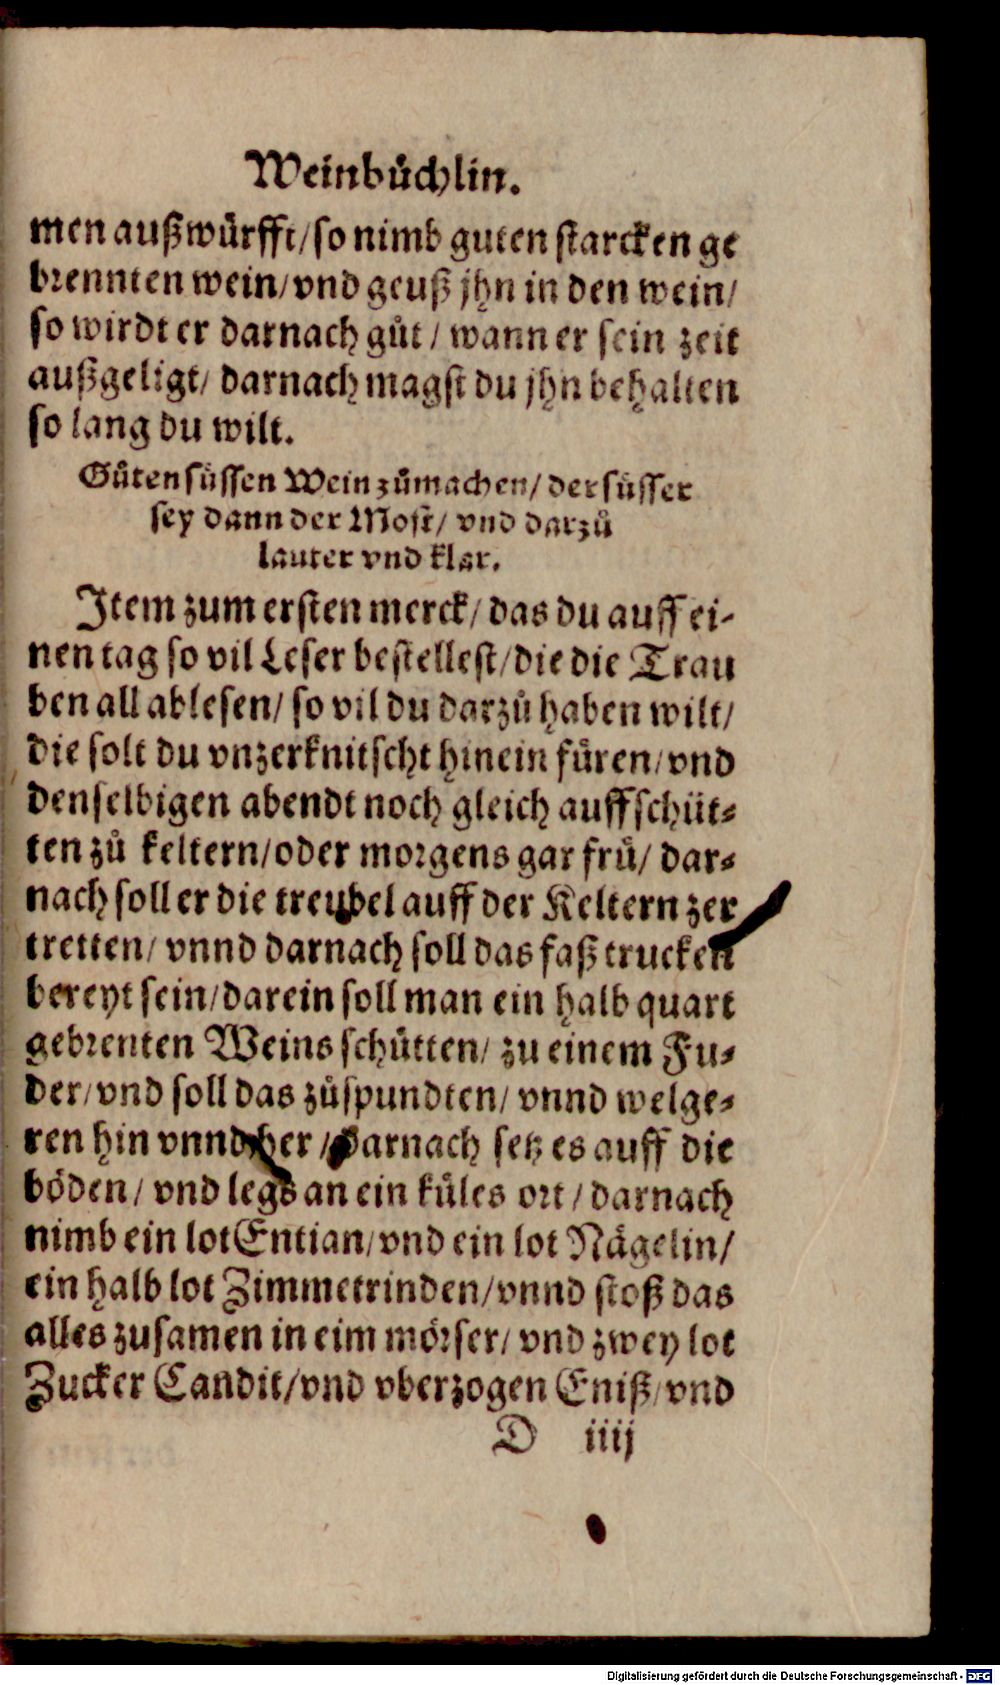 Weinbuͤchlin.
men außwuͤrfft/ so nimb guten starcken ge
brennten wein/ vnd geuß jhn in den wein/
so wirdt er darnach guͦt/ wann er sein zeit
außgeligt/ darnach magst du jhn behalten
so lang du wilt.
Guͦten suͤssen Wein zuͦmachen/ der suͤsser
sey dann der Most/ vnd darzuͦ
lauter vnd klar.
Item zum ersten merck/ das du auff ei-
nen tag so vil Leser bestellest/ die die Trau
ben all ablesen/ so vil du darzuͦ haben wilt/
die solt du vnzerknitscht hinein fuͤren/ vnd
denselbigen abendt noch gleich auffschüt-
ten zuͦ keltern/ oder morgens gar fruͤ/ dar-
nach soll er die treubel auff der Keltern zer
tretten/ vnnd darnach soll das faß trucken
bereyt sein/ darein soll man ein halb quart
gebrenten Weins schütten/ zu einem Fu-
der/ vnd soll das zuͦspundten/ vnnd welge-
ren hin vnnd her/ darnach setz es auff die
boͤden/ vnd legs an ein kuͤles ort/ darnach
nimb ein lot Entian/ vnd ein lot Naͤgelin/
ein halb lot Zimmetrinden/ vnnd stoß das
alles zusamen in eim moͤrser/ vnd zwey lot
Zucker Candit/ vnd vberzogen Eniß/ vnd
D iiij
Digitalisierung gefördert durch die Deutsche Forschungsgemeinschaft - DFG